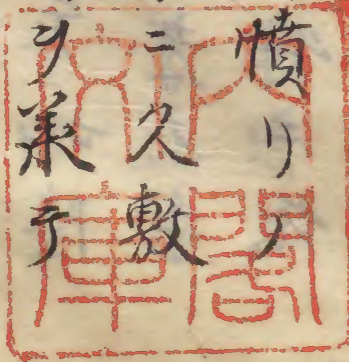 憤リノ
ニ久敷
ヲテ
内閣
文庫